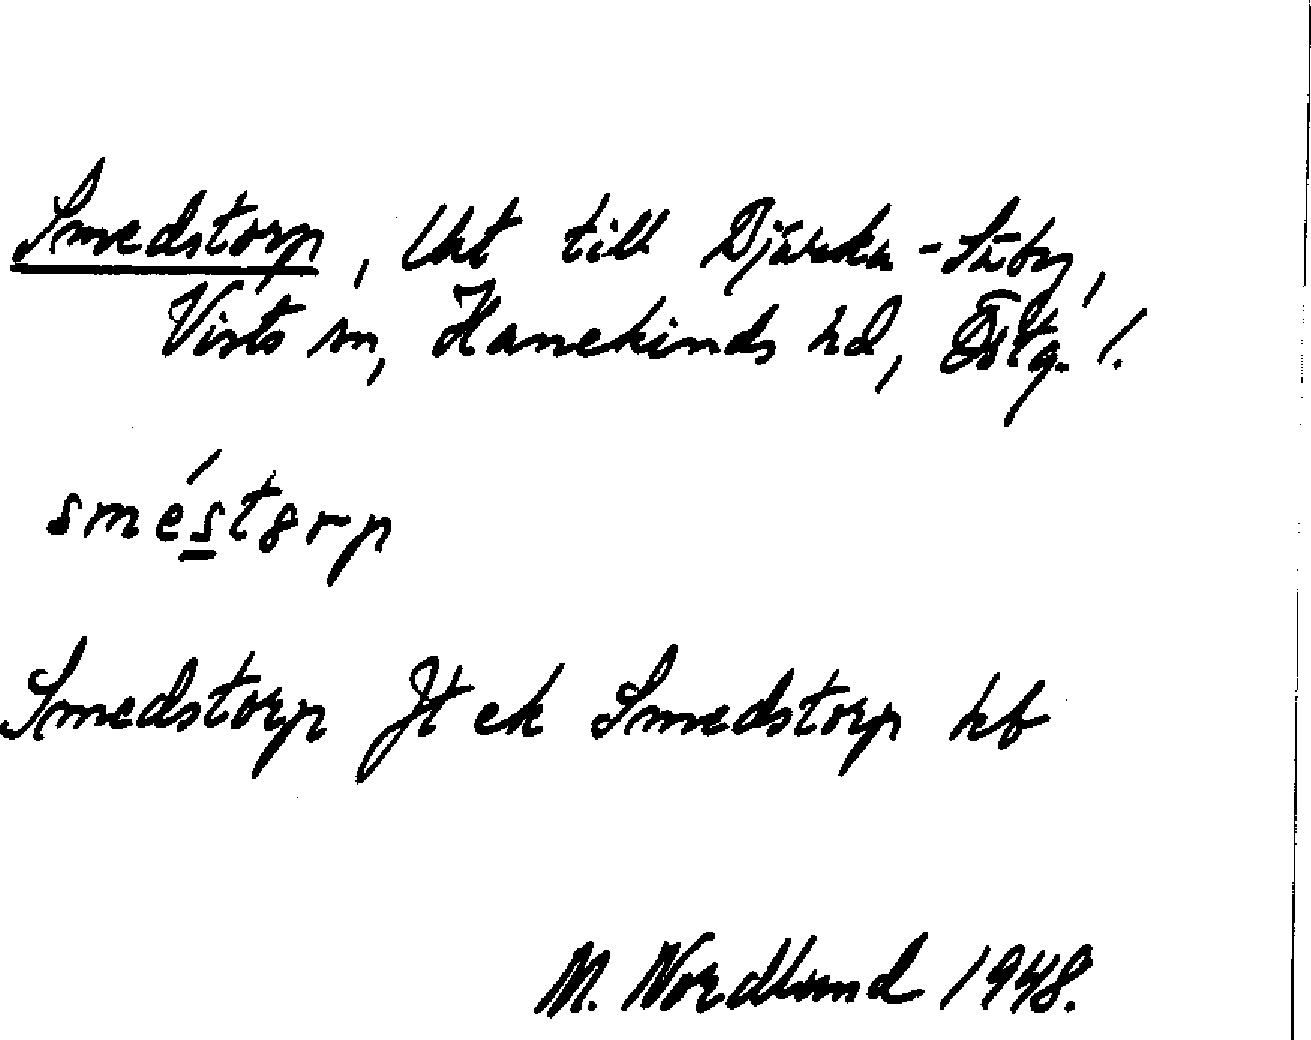 Smedstorp, Uht till Djurka-Säby,
Vists sn, Hanekinds hd, Östg. l.
sméstorp
Smedstorp Jt ek Smedstorp hb
M. Nordlund 1948.